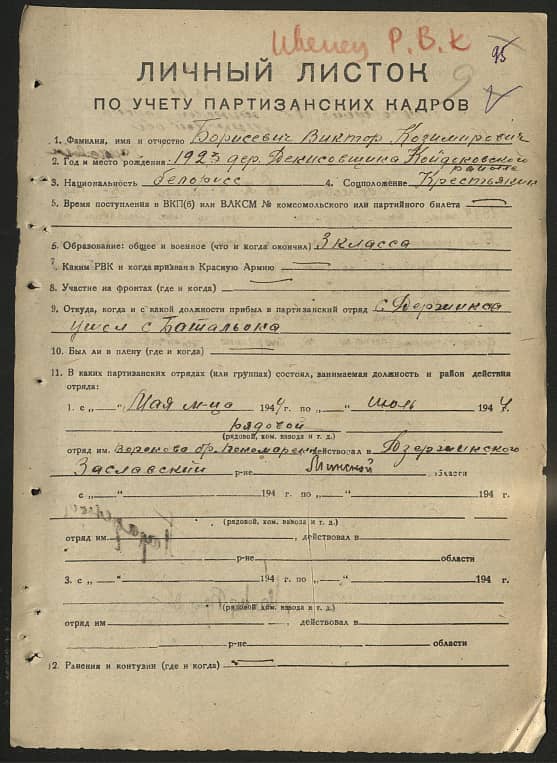 Ивенец Р.В.К
95
9
ЛИЧНЫЙ ЛИСТОК
ПО УЧЕТУ ПАРТИЗАНСКИХ КАДРОВ
1. Фамилия, имя и отчество Борисевич Виктор Козимирович
2. Год и место рождения: 1923 дер. Денисовщина Койдоновской
района
3. Национальность белорусс 4. Соцположение Крестьянин
5. Время поступления в ВКП(б) или ВЛКСМ № комсомольского или партийного билета —
6. Образование: общее и военное (что и когда окончил) 3 класса
7. Каким РВК и когда призван в Красную Армию —
8. Участие на фронтах (где и когда) —
9. Откуда, когда и с какой должности прибыл в партизанский отряд с Дзержинска
ушел с Батальона
10. Был ли в плену (где и когда) —
11. В каких партизанских отрядах (или группах) состоял, занимаемая должность и район действия
отряда:
1. с „ —“ Мая м-ца 1944 г. по „ —“ июль 1944 г.
рядовой
(рядовой, ком. взвода и т. д.)
отряд им. Воронова бр. Пономаренко действовал в Дзержинского
Заславский р-не Минской области
с „ —“ 194 г. по „ —“ 194 г.
(рядовой, ком. взвода и т. д.)
отряд им. , действовал в
р-не области
3. с „ —“ 194 г. по „ —“ 194 г.
(рядовой, ком. взвода и т. д.)
отряд им , действовал в
р-не области
12. Ранения и контузии (где и когда) —